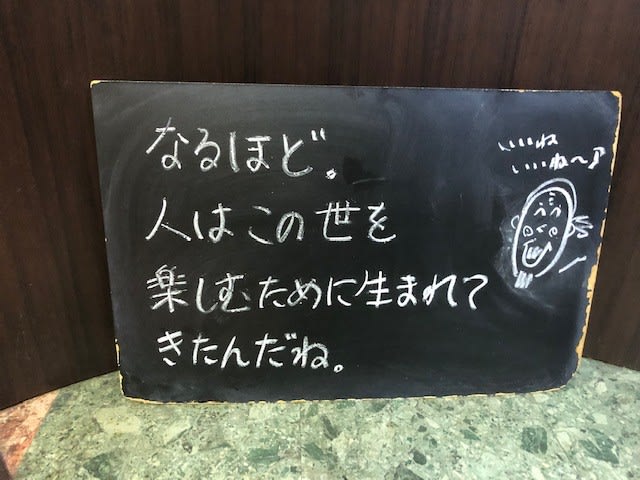 なるほど。
人はこの世を
楽しむために生まれて
きたんだね。
いいね
いいね〜♪